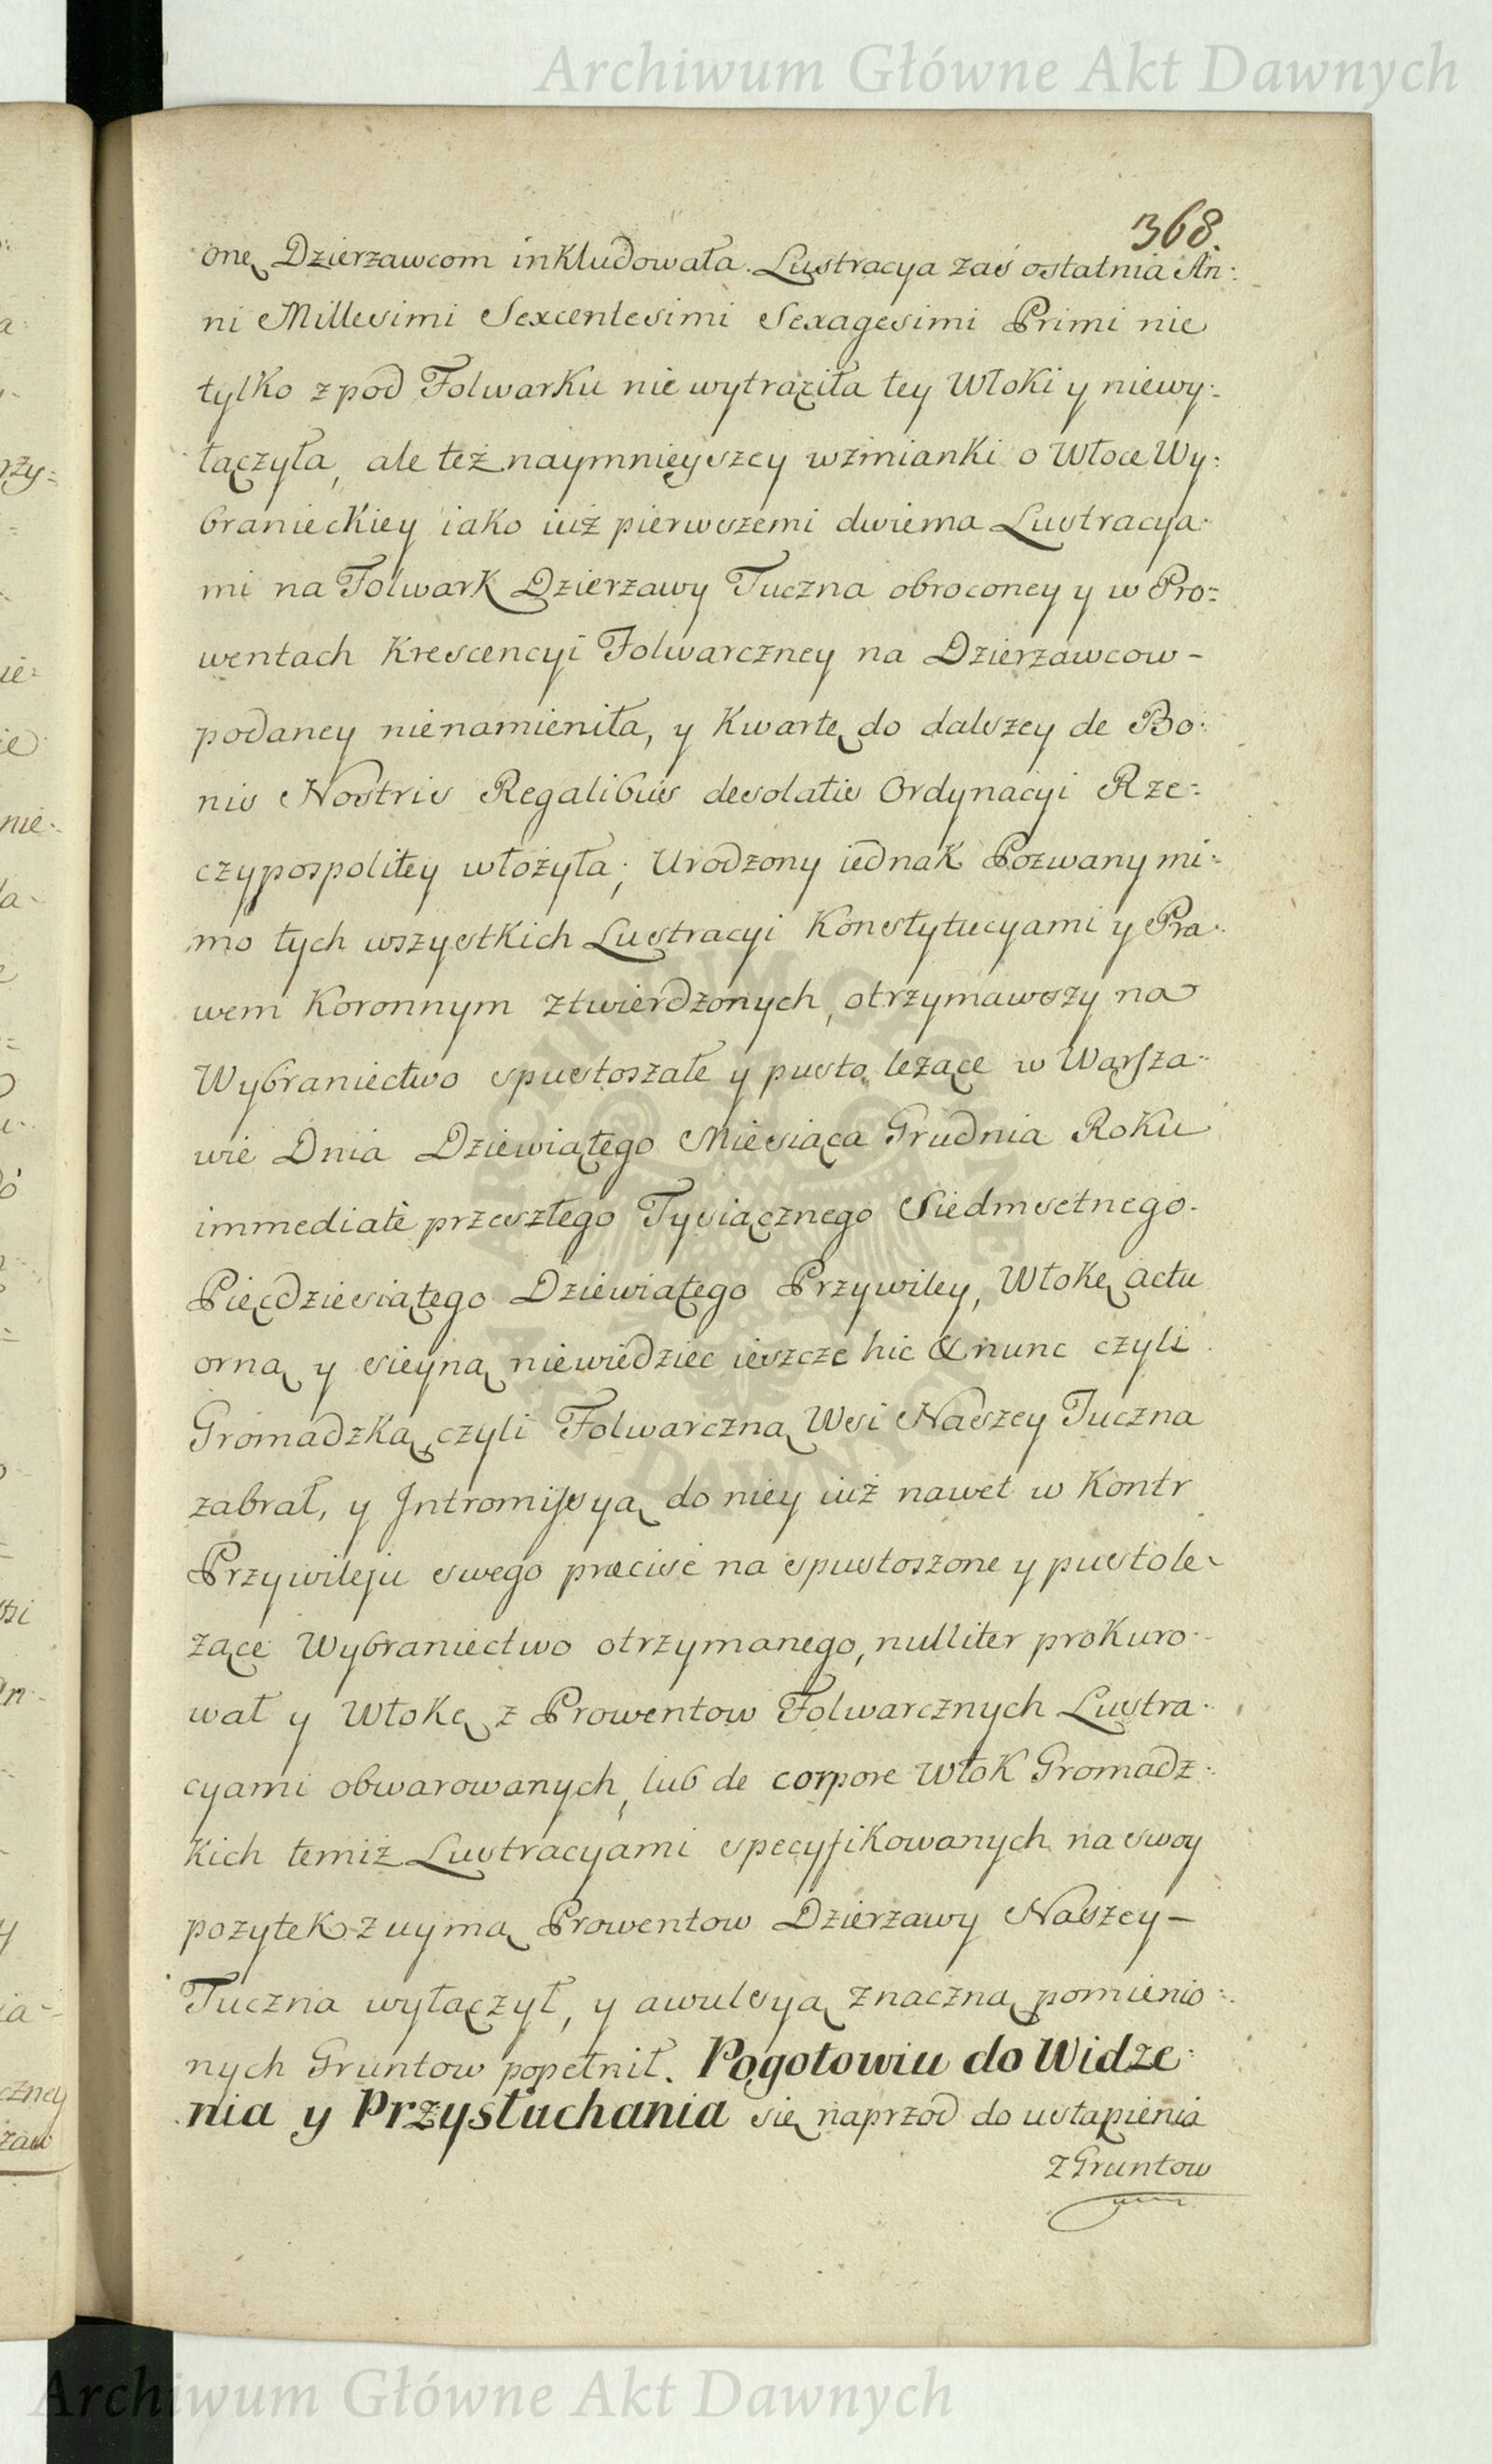 Archiwum Główne Akt Dawnych
368.
onę Dzierzawcom inkludowała. Lustracya zaś ostatnia An:
ni Millesimi Sexcentesimi Sexagesimi Primi nie
tylko z pod Folwarku nie wytrąziła tey Włoki y niewy:
łączyła, ale też naymnieyszey wźmianki o Włoce Wy:
branieckiey iako iuż pierwszemi dwiema Lustracya:
mi na Folwark Dzierzawy Tuczna obroconey y w Pro:
wentach Krescencyi Folwarczney na Dzierzawcow -
podaney nienamieniła, y Kwartę do dalszey de Bo:
nis Nostris Regalibus desolatis Ordynacyi Rze:
czypospolitey włożyła; Urodzony iednak Pozwany mi:
mo tych wszystkich Lustracyi Konstytucyami y Pra:
wem Koronnym ztwierdzonych, otrzymawszy na
Wybraniectwo spustoszałe y pusto leżące w Warsza:
wie Dnia Dziewiątego Miesiąca Grudnia Roku
immediatè przeszłego Tysiącznego Siedmsetnego.
Pięcdziesiątego Dziewiątego Przywiley, Włokę actu
orną y sieyną niewiedziec ieszcze hic & nunc czyli
Gromadzką, czyli Folwarczną Wsi Naszey Tuczna
zabrał, y Intromissyą do niey iuż nawet w Kontr
Przywileju swego præcisè na spustoszone y pusto le:
żące Wybraniectwo otrzymanego, nulliter prokuro:
wał y Włokę z Prowentow Folwarcznych Lustra:
cyami obwarowanych, lub de corpore Włok Gromadz:
kich temiż Lustracyami specyfikowanych na swoy
pozytek z uymą Prowentow Dzierzawy Naszey -
Tuczna wyłączył, y awulsyą znaczną pomienio:
nych Gruntow popełnił. Pogotowiu do Widze:
nia y Przysłuchania się naprzod do ustąpienia
z Gruntow
Archiwum Główne Akt Dawnych